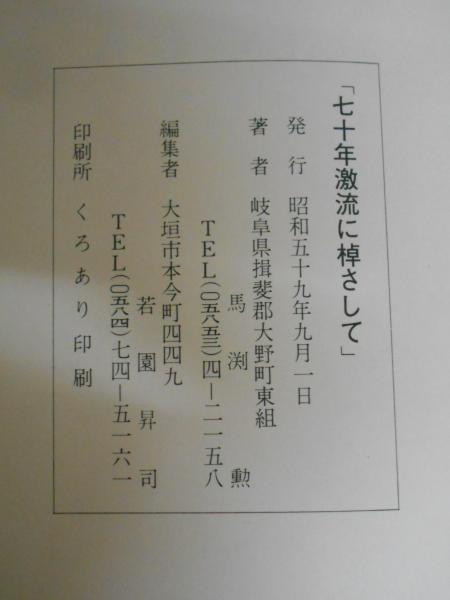 「七十年激流に棹さして」
発行 昭和五十九年九月一日
著者 岐阜県揖斐郡大野町東組
馬渕勲
TEL(〇五八五三)四―二一五八
編集者 大垣市本今町四四九
若園昇司
TEL(〇五八四)七四―五一六一
印刷所 くろあり印刷